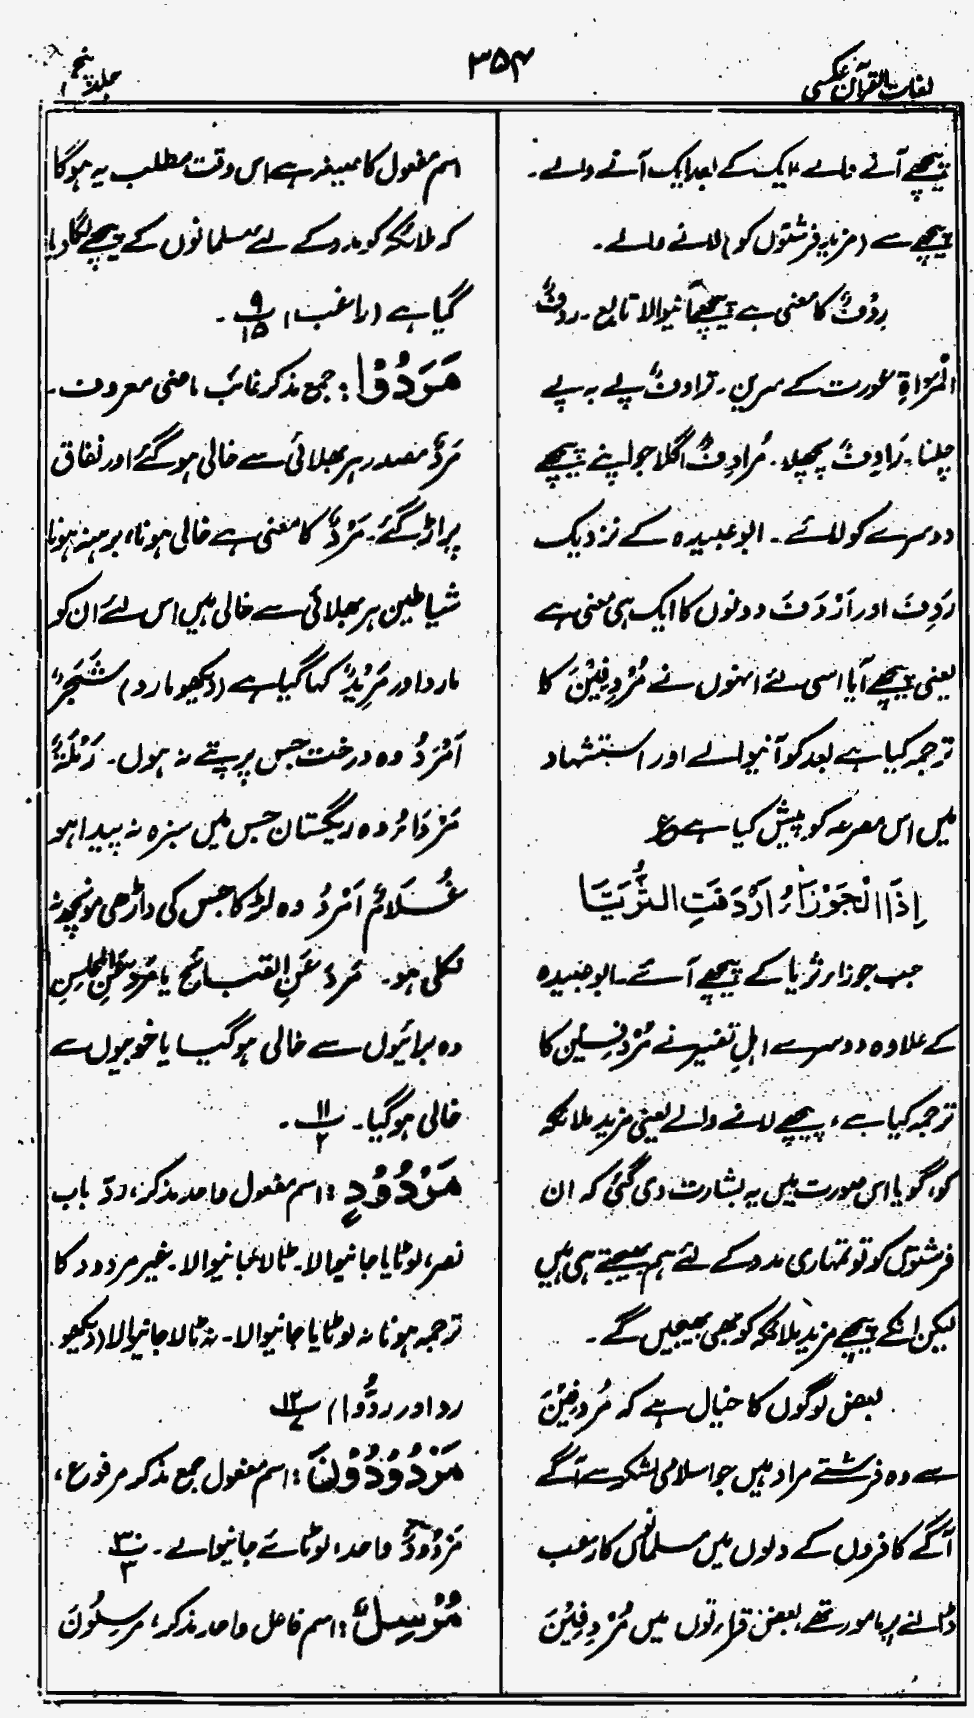 لغات القرآن عکسی
۳۵۴
جلد پنجم
پیچھے آنے والے ، ایک کے بعد ایک آنے والے ۔
پیچھے سے (مزید فرشتوں کو) لانے والے ۔
رِدْفٌ کا معنی ہے پیچھے آنیوالا تابع ۔ ردفُ
الْمَرْاَۃِ عورت کے سرین ۔ ترادفٌ پے بہ پے
چلنا ، رَادِفٌ پچھلا ۔ مُرادِفٌ اگلا جو اپنے پیچھے
دوسرے کو لائے ۔ ابو عبیدہ کے نزدیک
رَدِفَ اور اَرْدَفَ دونوں کا ایک ہی معنی ہے
یعنی پیچھے آیا اسی لئے انہوں نے مُرْدِفِیْنَ کا
ترجمہ کیا ہے بعد کو آنیوالے اور استشہاد
میں اس مصرعہ کو پیش کیا ہے ع
اِذَا الْجَوْزَاءُ اَرْدَفَتِ الثُّرَیَّا
جب جوزا ء ثریا کے پیچھے آئے ۔ ابو عبیدہ
کے علاوہ دوسرے اہل تفسیر نے مُرْدِفِیْنَ کا
ترجمہ کیا ہے ، پیچھے لانے والے یعنی مزید ملائکہ
کو ، گویا اس صورت میں یہ بشارت دی گئی کہ ان
فرشتوں کو تو تمہاری مدد کے لئے ہم بھیجتے ہی ہیں
لیکن انکے پیچھے مزید ملائکہ کو بھی بھیجیں گے ۔
بعض لوگوں کا خیال ہے کہ مُردِفِیْنَ
سے وہ فرشتے مراد ہیں جو اسلامی لشکر سے آگے
آگے کافروں کے دلوں میں مسلمانوں کا رعب
ڈالنے پر مامور تھے ، بعض قراءتوں میں مُرْدِفِیْنَ
اسم مفعول کا صیغہ ہے اس وقت مطلب یہ ہو گا
کہ ملائکہ کو مدد کے لئے مسلمانوں کے پیچھے لگا دیا
گیا ہے (راغب) ۹/۱۵ ۔
مَرَدُوْا : جمع مذکر غائب ماضی معروف ۔
مَرْدٌ مصدر ہر بھلائی سے خالی ہو گئے اور نفاق
پر اڑ گئے ۔ مَرْدٌ کا معنی ہے خالی ہونا ، برہنہ ہونا
شیاطین ہر بھلائی سے خالی ہیں اس لئے ان کو
مارد اور مَرِیْدٌ کہا گیا ہے (دیکھو مارد) شَجَرٌ
اَمْرَدُ وہ درخت جس پر پتے نہ ہوں ۔ رَمْلَۃٌ
مَرْدَاءُ وہ ریگستان جس میں سبزہ نہ پیدا ہو
غُلَامٌ اَمْرَدُ وہ لڑکا جس کی داڑھی مونچھ نہ
نکلی ہو ۔ مَرَدَ عَنِ القبائح یا مَرَدَ عَنِ المحاسِنِ
وہ برائیوں سے خالی ہو گیا یا خوبیوں سے
خالی ہو گیا ۔ ۱۱/۲ ۔
مَرْدُوْدٍ : اسم مفعول واحد مذکر ، ردّ باب
نصر ، لوٹایا جانیوالا ۔ ٹالا جانیوالا ۔ غیر مردود کا
ترجمہ ہو نا نہ لوٹایا جانیوالا ۔ نہ ٹالا جانیوالا (دیکھو
رد اور ردُّوا) ۱۲/۷
مَرْدُوْدُوْنَ : اسم مفعول جمع مذکر مرفوع ،
مَرْدُوْدٌ واحد ، لوٹائے جانیوالے ۔ ۳/۳
مُرْسِلٌ : اسم فاعل واحد مذکر ، مرسِلُوْنَ